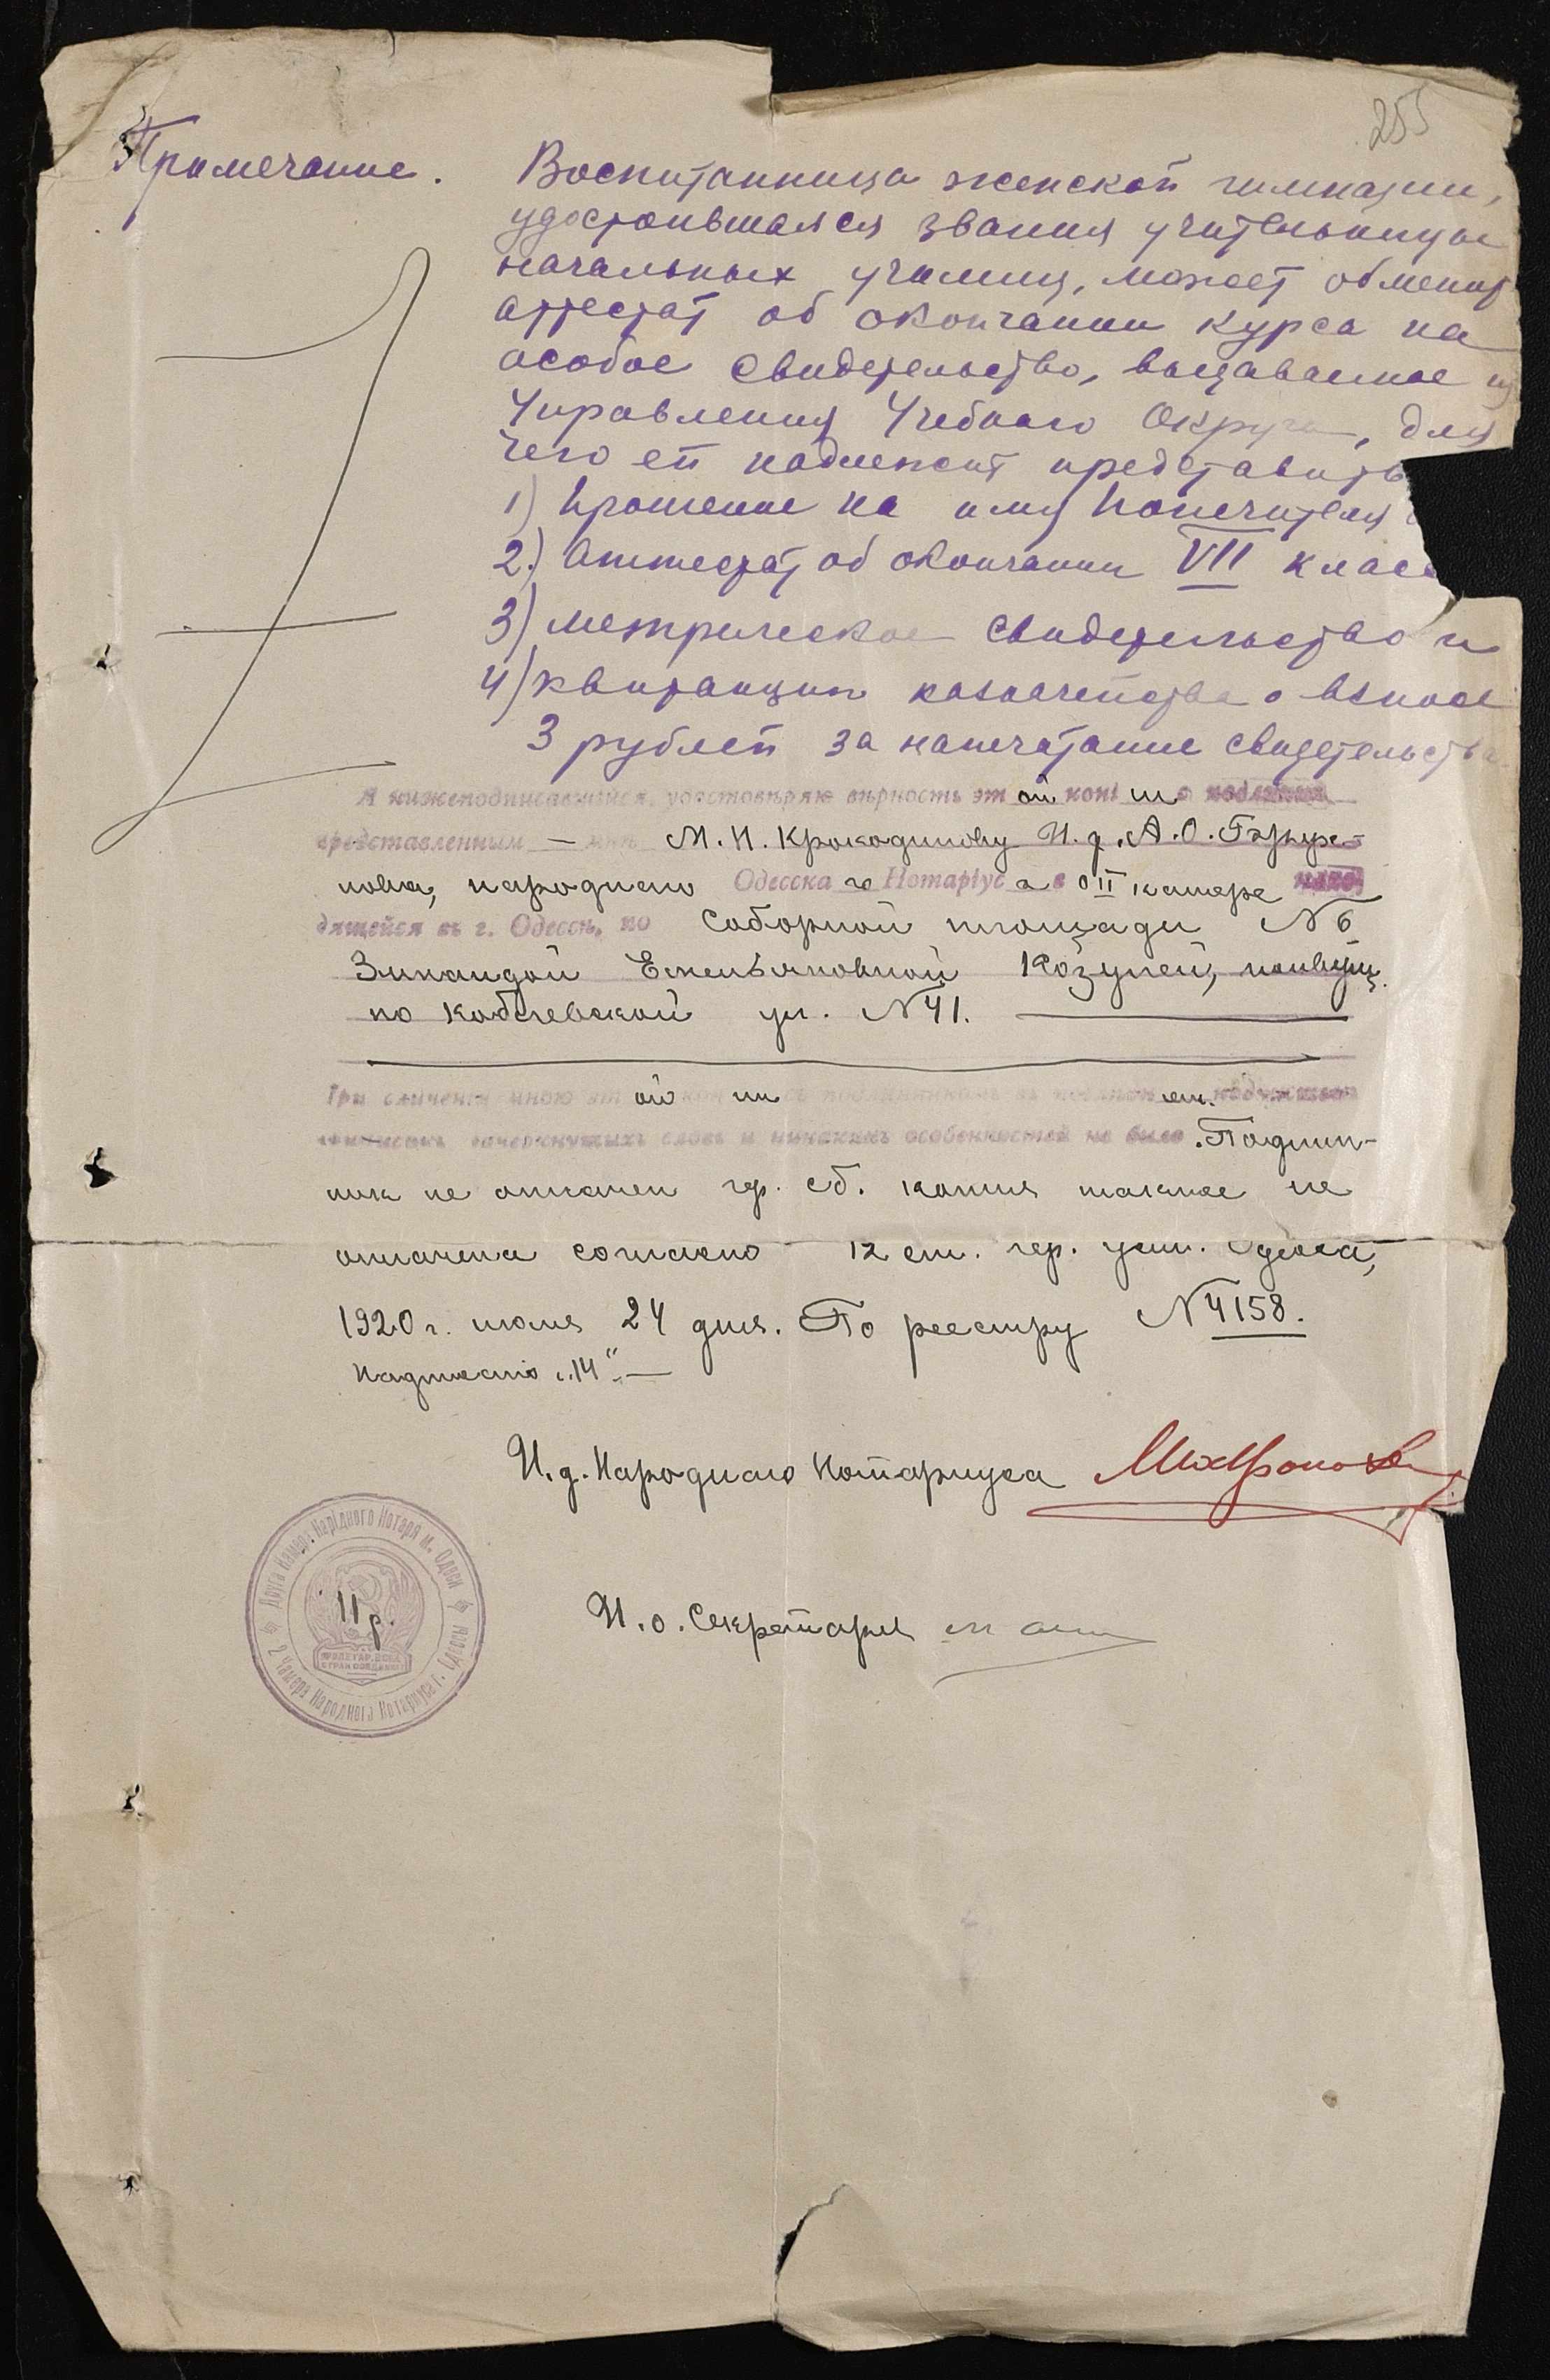 255
Примечание. Воспитанница женской гимназии,
удостоившаяся звания учительницы
начальных училищ, может обменят
аттестат об окончании курса на
особое свидетельство, выдаваемое из
Управления Учебного Округа, для
чего ей надлежит представить
1) Прошение на имя Попечителя
2) Аттестат об окончании VII класс
3) метрическое свидетельство и
4) квитанцию казначейства о взносе
3 рублей за напечатание свидетельства.
Я нижеподписавшийся, удостовѣряю вѣрность этой копіи с подлинн
представленным — мнѣ М. И. Крокодинову И. д. А. О.
нова, народного Одесскаго Нотаріуса в II камере нахо-
дящейся въ г. Одессѣ, по Соборной площади № 6
Зинаидой Емельяновной Козулей, живущ.
по Коблевской ул. № 41.
При сличеніи мною этой копіи съ подлинникомъ въ
зачеркнутыхъ словъ и никакихъ особенностей не было. Подлин-
ник не оплачен гр. сб. копия также не
оплачена согласно 12 ст. гер. уст. Одесса,
1920 г. июля 24 дня. По реестру № 4158.
Надписано "14". —
И. д. Народного Нотариуса
И. о. Секретаря
Друга Камера Народного Нотаря м. Одеси
2 Камера Народного Нотариуса г. Одессы
11 р.